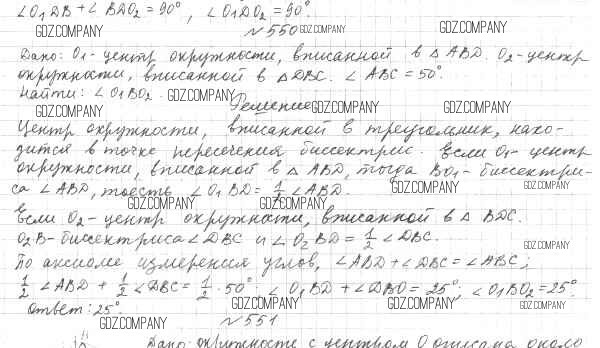 ∠O₁DB + ∠BDO₂ = 90°, ∠O₁DO₂ = 90°.
GDZ.COMPANY №550 GDZ.COMPANY GDZ.COMPANY
Дано: O₁-центр окружности, вписанной в △ABD. O₂-центр
окружности, вписанной в △DBC. ∠ABC = 50°.
Найти: ∠O₁BO₂. GDZ.COMPANY
GDZ.COMPANY Решение GDZ.COMPANY GDZ.COMPANY
Центр окружности, вписанной в треугольник, нахо-
дится в точке пересечения биссектрис. Если O₁- центр
окружности, вписанной в △ABD, тогда BO₁- биссектри-
са ∠ABD, тоесть ∠O₁BD = 1/2 ∠ABD. GDZ.COMPANY GDZ.COMPANY
GDZ.COMPANY GDZ.COMPANY
Если O₂- центр окружности, вписанной в △BDC.
O₂B-биссектриса ∠DBC и ∠O₂BD = 1/2 ∠DBC.
GDZ.COMPANY
По аксиоме измерения углов, ∠ABD + ∠DBC = ∠ABC;
1/2 ∠ABD + 1/2 ∠DBC = 1/2 · 50° ∠O₁BD + ∠DBO = 25°; ∠O₁BO₂ = 25°.
GDZ.COMPANY GDZ.COMPANY GDZ.COMPANY
Ответ: 25°.
GDZ.COMPANY №551
Дано: окружность с центром O описана около